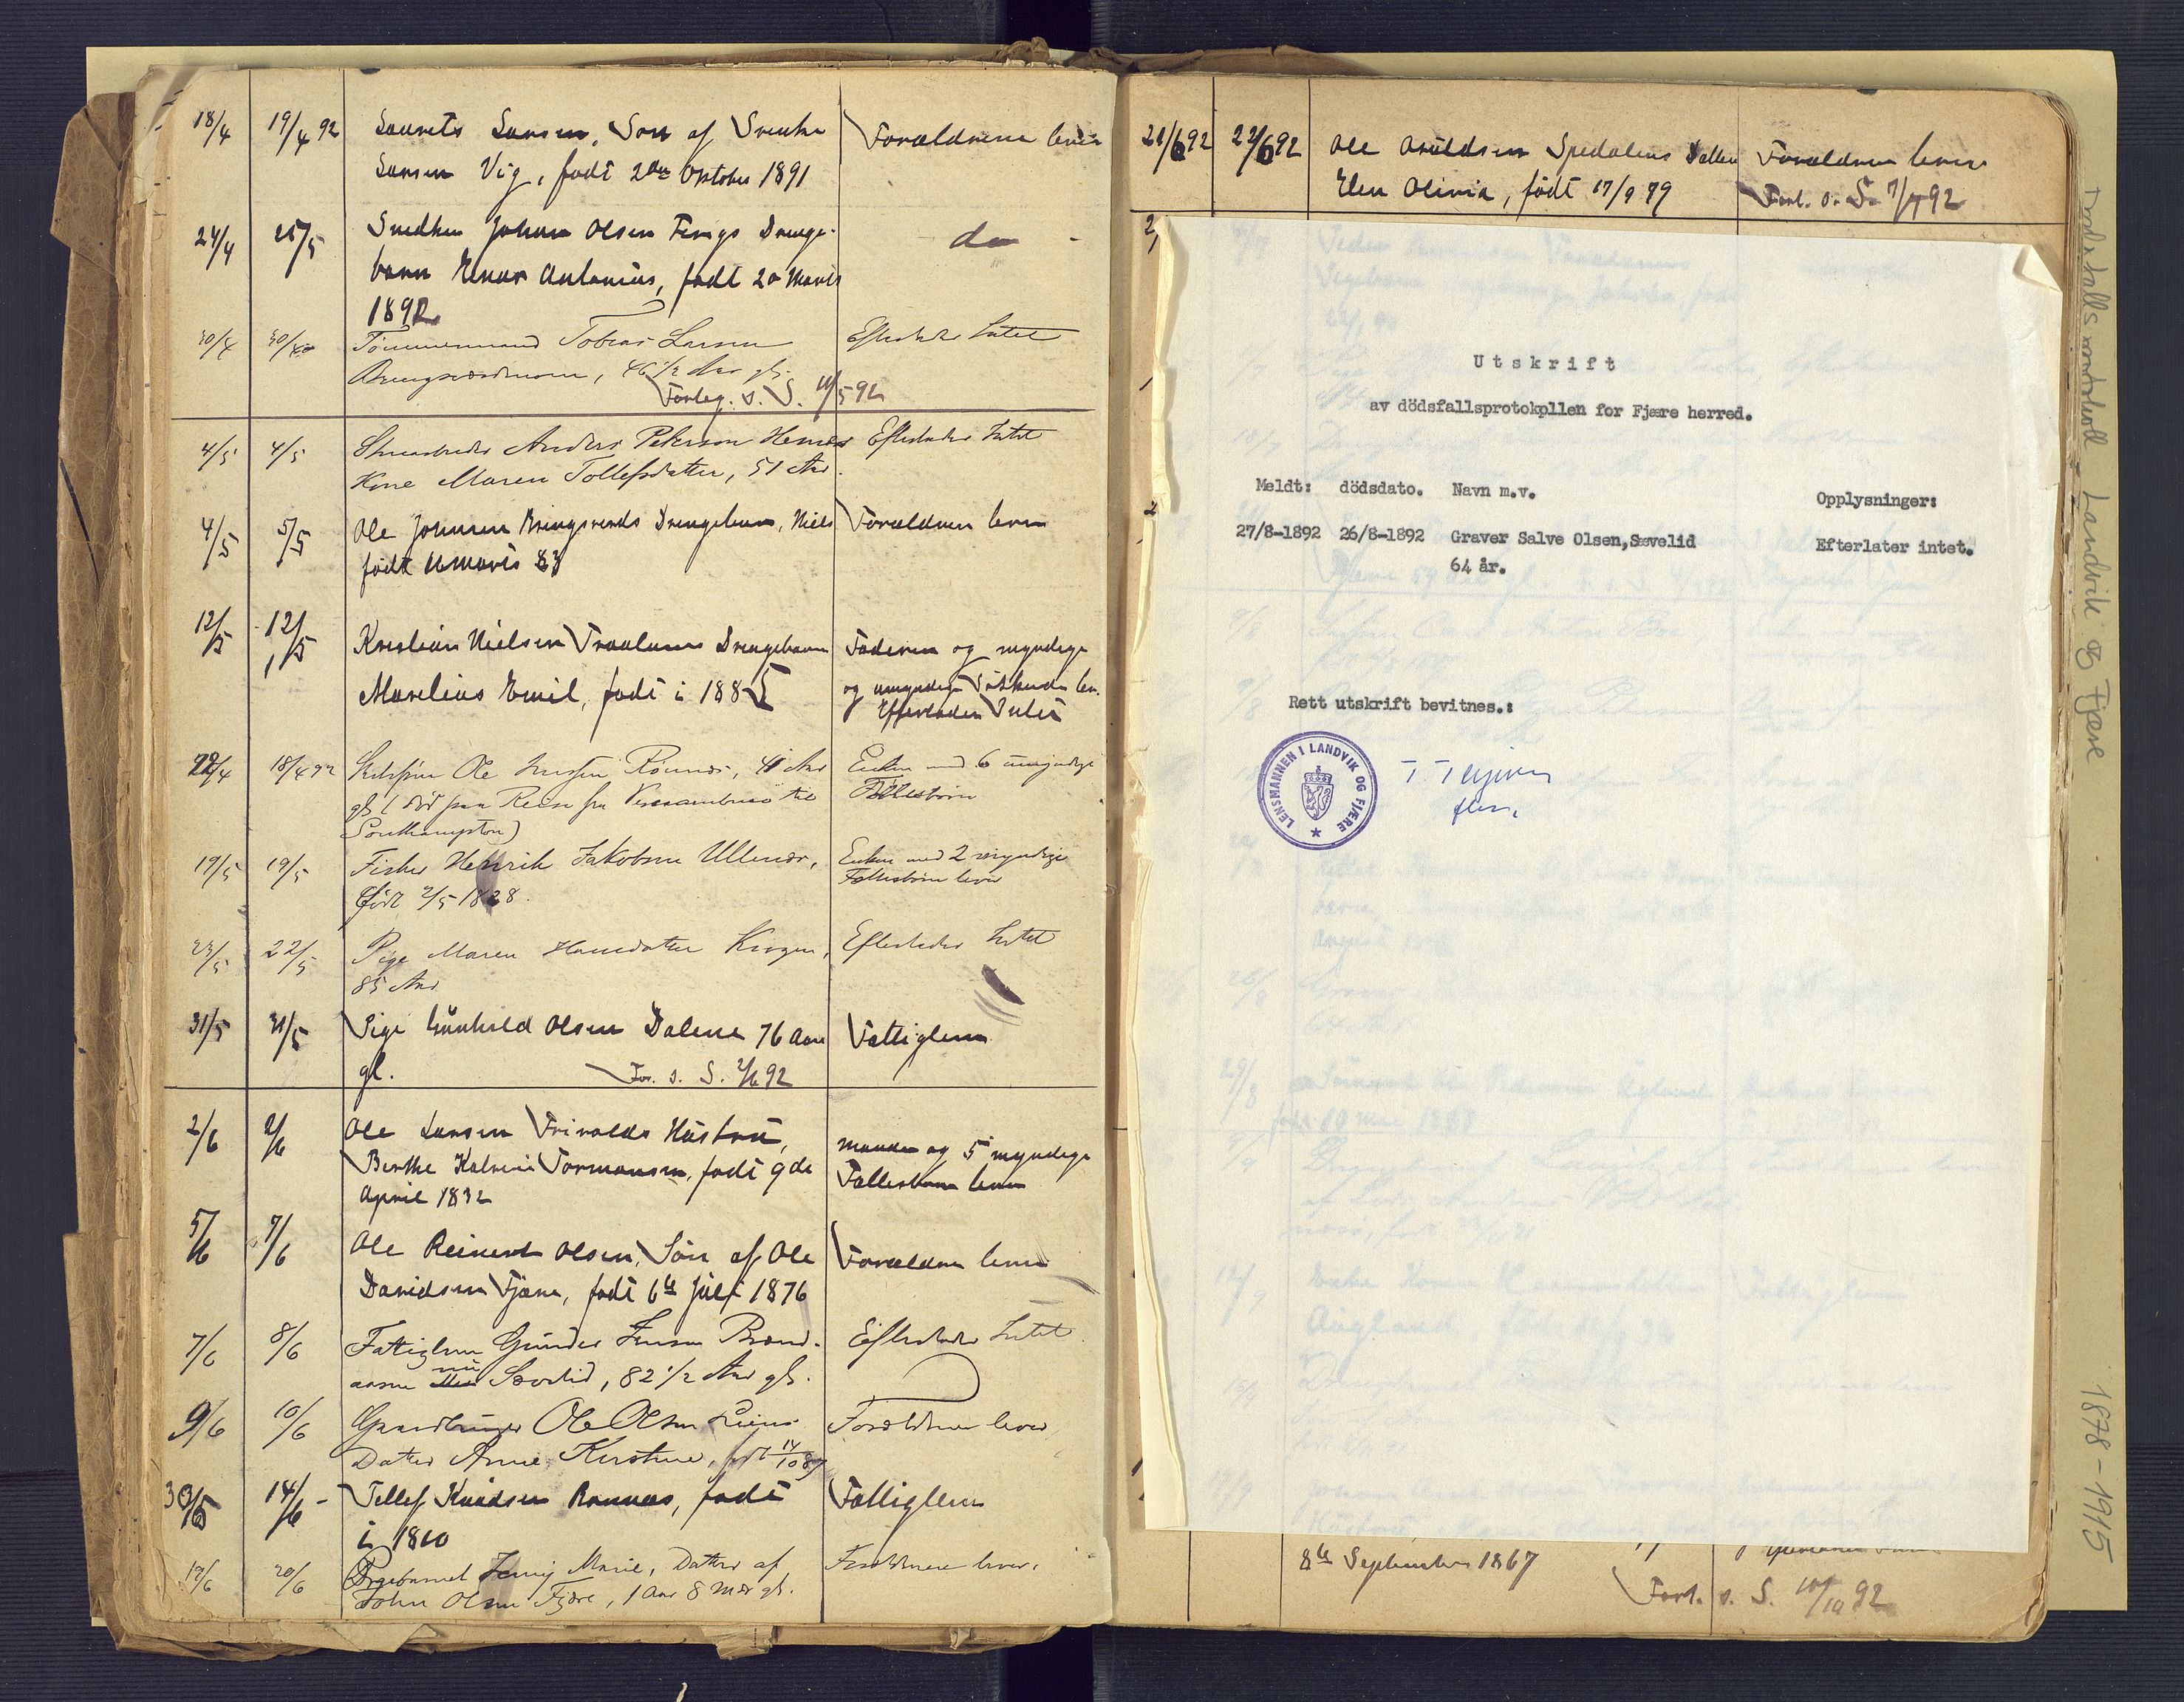 18/4 19/4 92 Laurits Larsen, Søn af Svenke Forældrene lever
Larsen Vig, født 2den Oktober 1891
24/4 25/5 Snedker Johan Olsen Fevigs Drenge- do -
barn Einar Antonius, født 20 Marts
1892
30/4 30/4 Tømmermand Tobias Larsen Efterlader Intet
46 1/2 Aar gl.
Forleg. s. S. 11/5 92
4/5 4/5 Anders Petersen Hemnes Efterlader Intet
Kone Maren Tollefsdatter, 51 Aar.
4/5 5/5 Ole Johnsen Bringsværds Drengebarn, Niels Forældrene lever
født Marts 83
12/5 12/5 Kristian Nielsen Traalums Drengebarn Faderen og myndige
Marelius Emil, født i 1885 og umyndige Sødskende lev.
Efterlader Intet
22/4 18/4 92 Skibsfører Ole Rønnes, 41 Aar Enken med 6 umyndige
gl. (død paa Reise fra Pernambuco til Fællesbørn
Southampton)
19/5 19/5 Fisker Henrik Jakobsen Ullenes, Enken med 2 myndige
født 2/5 1828. Fællesbørn lever
23/5 22/5 Pige Maren Hansdatter Krogen, Efterlader Intet
85 Aar
31/5 31/5 Pige Gunhild Olsen Dalene 76 Aar Fattiglem
gl. For. s. S. 2/6 92
2/6 2/6 Ole Larsen Frivolds Hustru, Manden og 5 myndige
Berthe Katrine Tormonsen, født 9de Fællesbørn lever
April 1832
5/6 7/6 Ole Reinert Olsen, Søn af Ole Forældre lever
Davidsen Fjære, født 6te Juli 1876
7/6 8/6 Fattiglem Gunder Jensen Brænd- Efterlader Intet.
aasen nu Sævelid, 82 1/2 Aar gl.
9/6 10/6 Gaardbruger Ole Olsen Forældrene lever
Datter Anne Kirstine, født 14/10 87
30/5 14/6 - Tellef Knudsen Rønnes, født Fattiglem
i 1810
19/6 20/6 Pigebarnet Jenny Marie, Datter af Forældrene lever.
John Olsen Fjære, 1 Aar 8 Mdr gl.
21/6 92 22/6 92 Ole Aroldsen Spedalens Datter Forældrene lever
Elen Olivia, født 17/9 79 Forl. s. S. 7/7 92
Utskrift
av dödsfallsprotokpllen for Fjære herred.
Meldt: dödsdato. Navn m.v. Opplysninger:
27/8-1892 26/8-1892 Graver Salve Olsen,Sævelid Efterlater intet.
64 år.
Rett utskrift bevitnes.:
LENSMANNEN I LANDVIK OG FJÆRE
8de September 1867
Forl. s. S. 10/10 92
Dødsfallsprotokoll - Landvik og Fjære
1878-1915